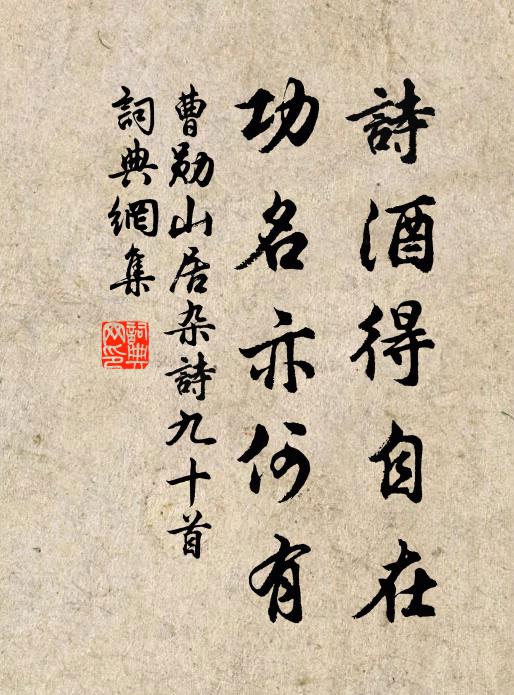 詩酒得自在
功名亦何有
曹勛山居杂詩九十首
詞典網集
詞典网印